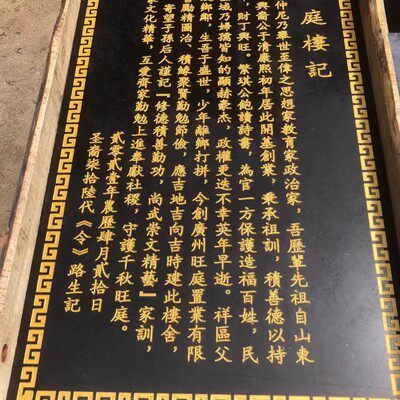 庭樓記
仲尼乃舉世至偉之思想家教育家政治家，吾歷輩先祖自山東
興裔公于清康熙初年居此開基創業，秉承祖訓，積善德以持
，財丁興旺。繁琪公飽讀詩書，為官一方保護造福百姓，民
域乃婦孺皆知的顯赫豪杰，政權更迭不幸英年早逝。祥區父
鄉鄉，生吾于盛世，少年離鄉打拼，今創廣州旺庭置業有限
勵精圖治、積緣聚貴勤勉節儉，應吉地吉向吉時建此樓舍，
寄望子孫后人謹記『修德積善勤功，尚武崇文精藝』家訓，
文化精華，互愛齊家勤勉上進奉獻社稷，守護千秋旺庭。
貳零貳壹年農歷肆月貳拾日
圣裔柒拾陸代《令》路生記